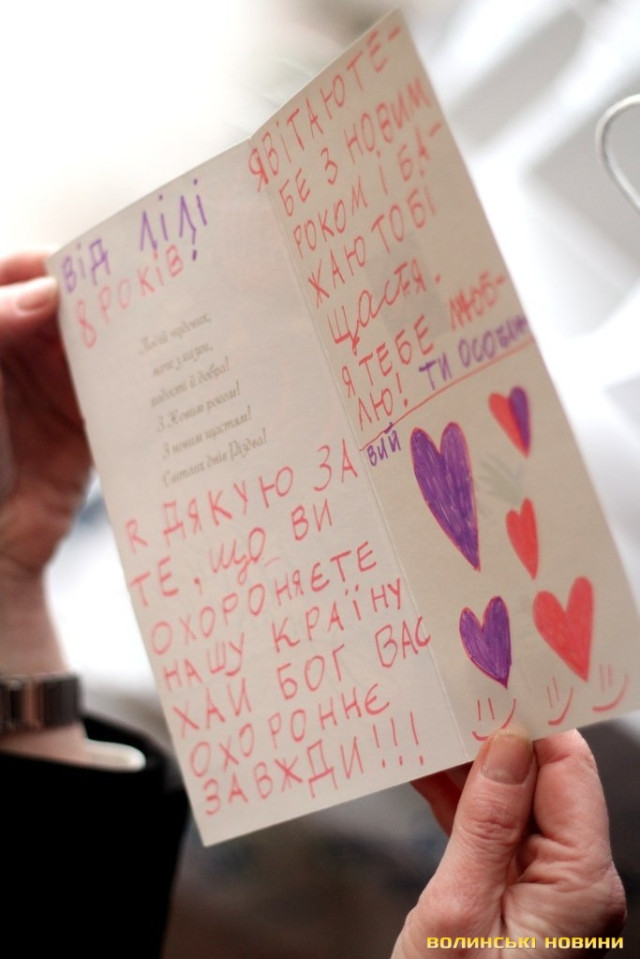 ВІД ЛІЛІ
8 РОКІВ!
радості й добра!
З Новим роком!
З новим щастям!
Світлих днів Різдва!
Я ДЯКУЮ ЗА
ТЕ, ЩО ВИ
ОХОРОНЯЄТЕ
НАШУ КРАЇНУ
ХАЙ БОГ ВАС
ОХОРОННЄ
ЗАВЖДИ!!!
ЯВІТАЮ ТЕ-
БЕ З НОВИМ
РОКОМ І БА-
ЖАЮ ТОБІ
ЩАСТЯ.
Я ТЕБЕ ЛЮБ-
ЛЮ! ТИ ОСОБЛИ
ВИЙ
ВОЛИНСЬКІ НОВИНИ